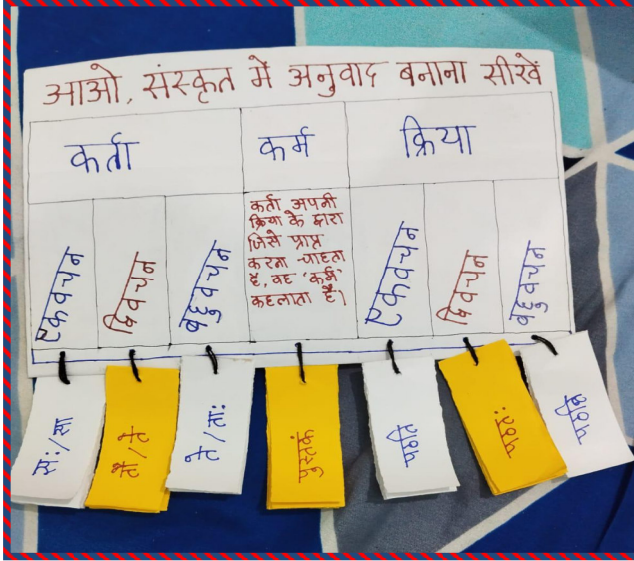 आओ, संस्कृत में अनुवाद बनाना सीखें
कर्ता कर्म क्रिया
एकवचन द्विवचन बहुवचन
कर्ता अपनी
क्रिया के द्वारा
जिसे प्राप्त
करना चाहता
है, वह 'कर्म'
कहलाता है।
एकवचन द्विवचन बहुवचन
सः/सा तौ/ते ते/ताः पुस्तकं पठति पठतः पठन्ति